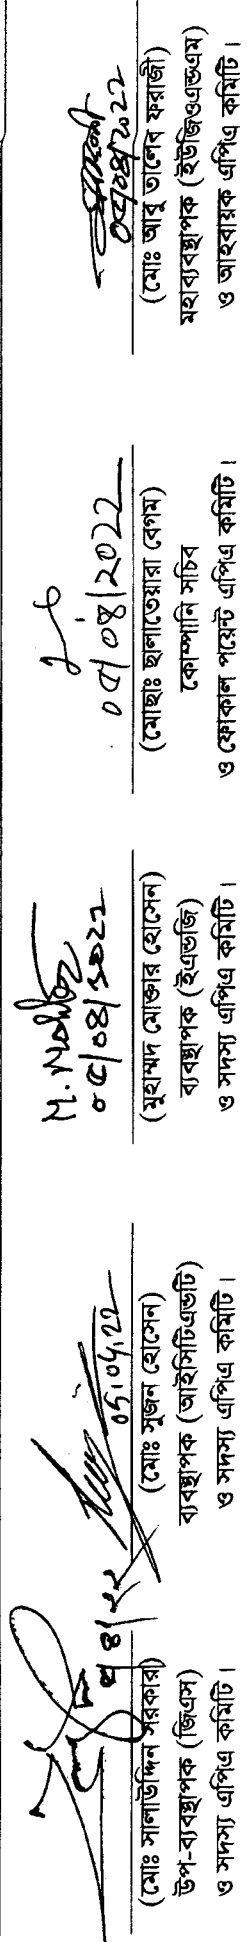 ৫/৪/২২
(মোঃ সালাউদ্দিন সরকার)
উপ-ব্যবস্থাপক (জিএস)
ও সদস্য এপিএ কমিটি।
05.04.22
(মোঃ সুজন হোসেন)
ব্যবস্থাপক (আইসিটিএন্ডটি)
ও সদস্য এপিএ কমিটি।
০৫/০৪/২০২২
(মুহাম্মদ মোক্তার হোসেন)
ব্যবস্থাপক (ইএন্ডজি)
ও সদস্য এপিএ কমিটি।
০৫/০৪/২০২২
(মোছাঃ ছালাতেয়ারা বেগম)
কোম্পানি সচিব
ও ফোকাল পয়েন্ট এপিএ কমিটি।
০৫/০৪/২০২২
(মোঃ আবু তালেব ফরাজী)
মহাব্যবস্থাপক (ইউজিওএন্ডএম)
ও আহবায়ক এপিএ কমিটি।